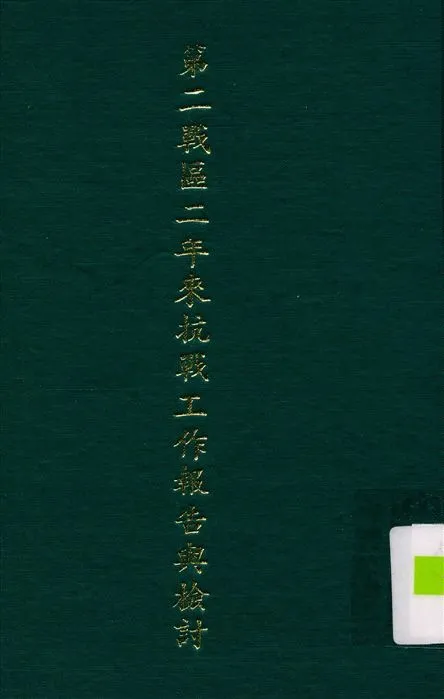 第二戰區二年來抗戰工作報告與檢討